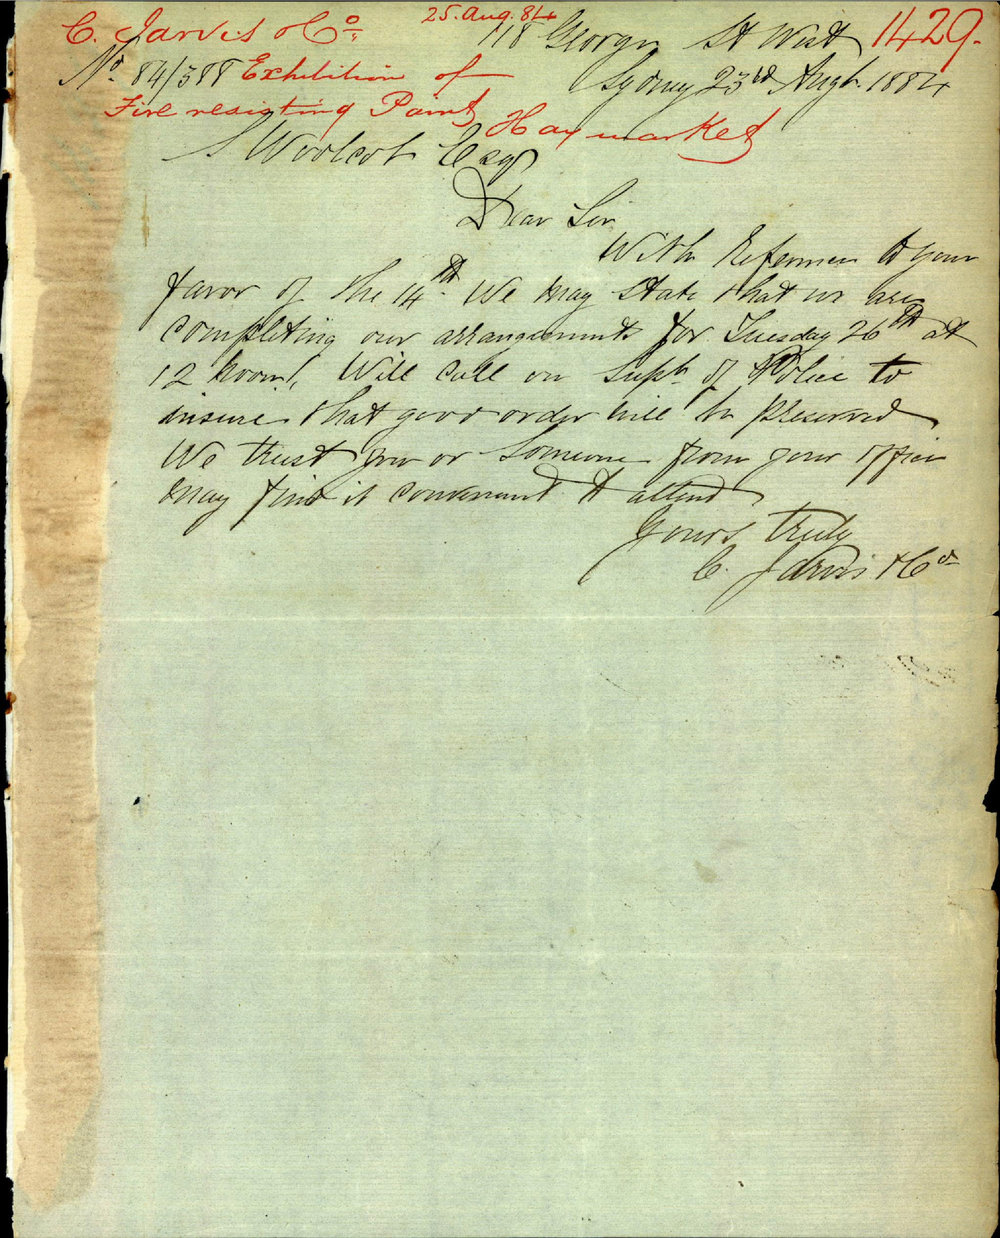 25. Aug. 84
C. Jarvis & Co. 118 George St West 1429.
No. 84/388 Exhibition of Sydney 23rd Augt. 1884
Fire resisting Paint, Haymarket
S Woolcot Esqr
Dear Sir,
With Reference to your
favor of the 14th. We may state that we are
completing our arrangements for Tuesday 26th at
12 noon, Will call on Supt. of Police to
insure that good order will be preserved
We trust you or someone from your office
may find it convenient to attend
Yours truly
C. Jarvis & Co